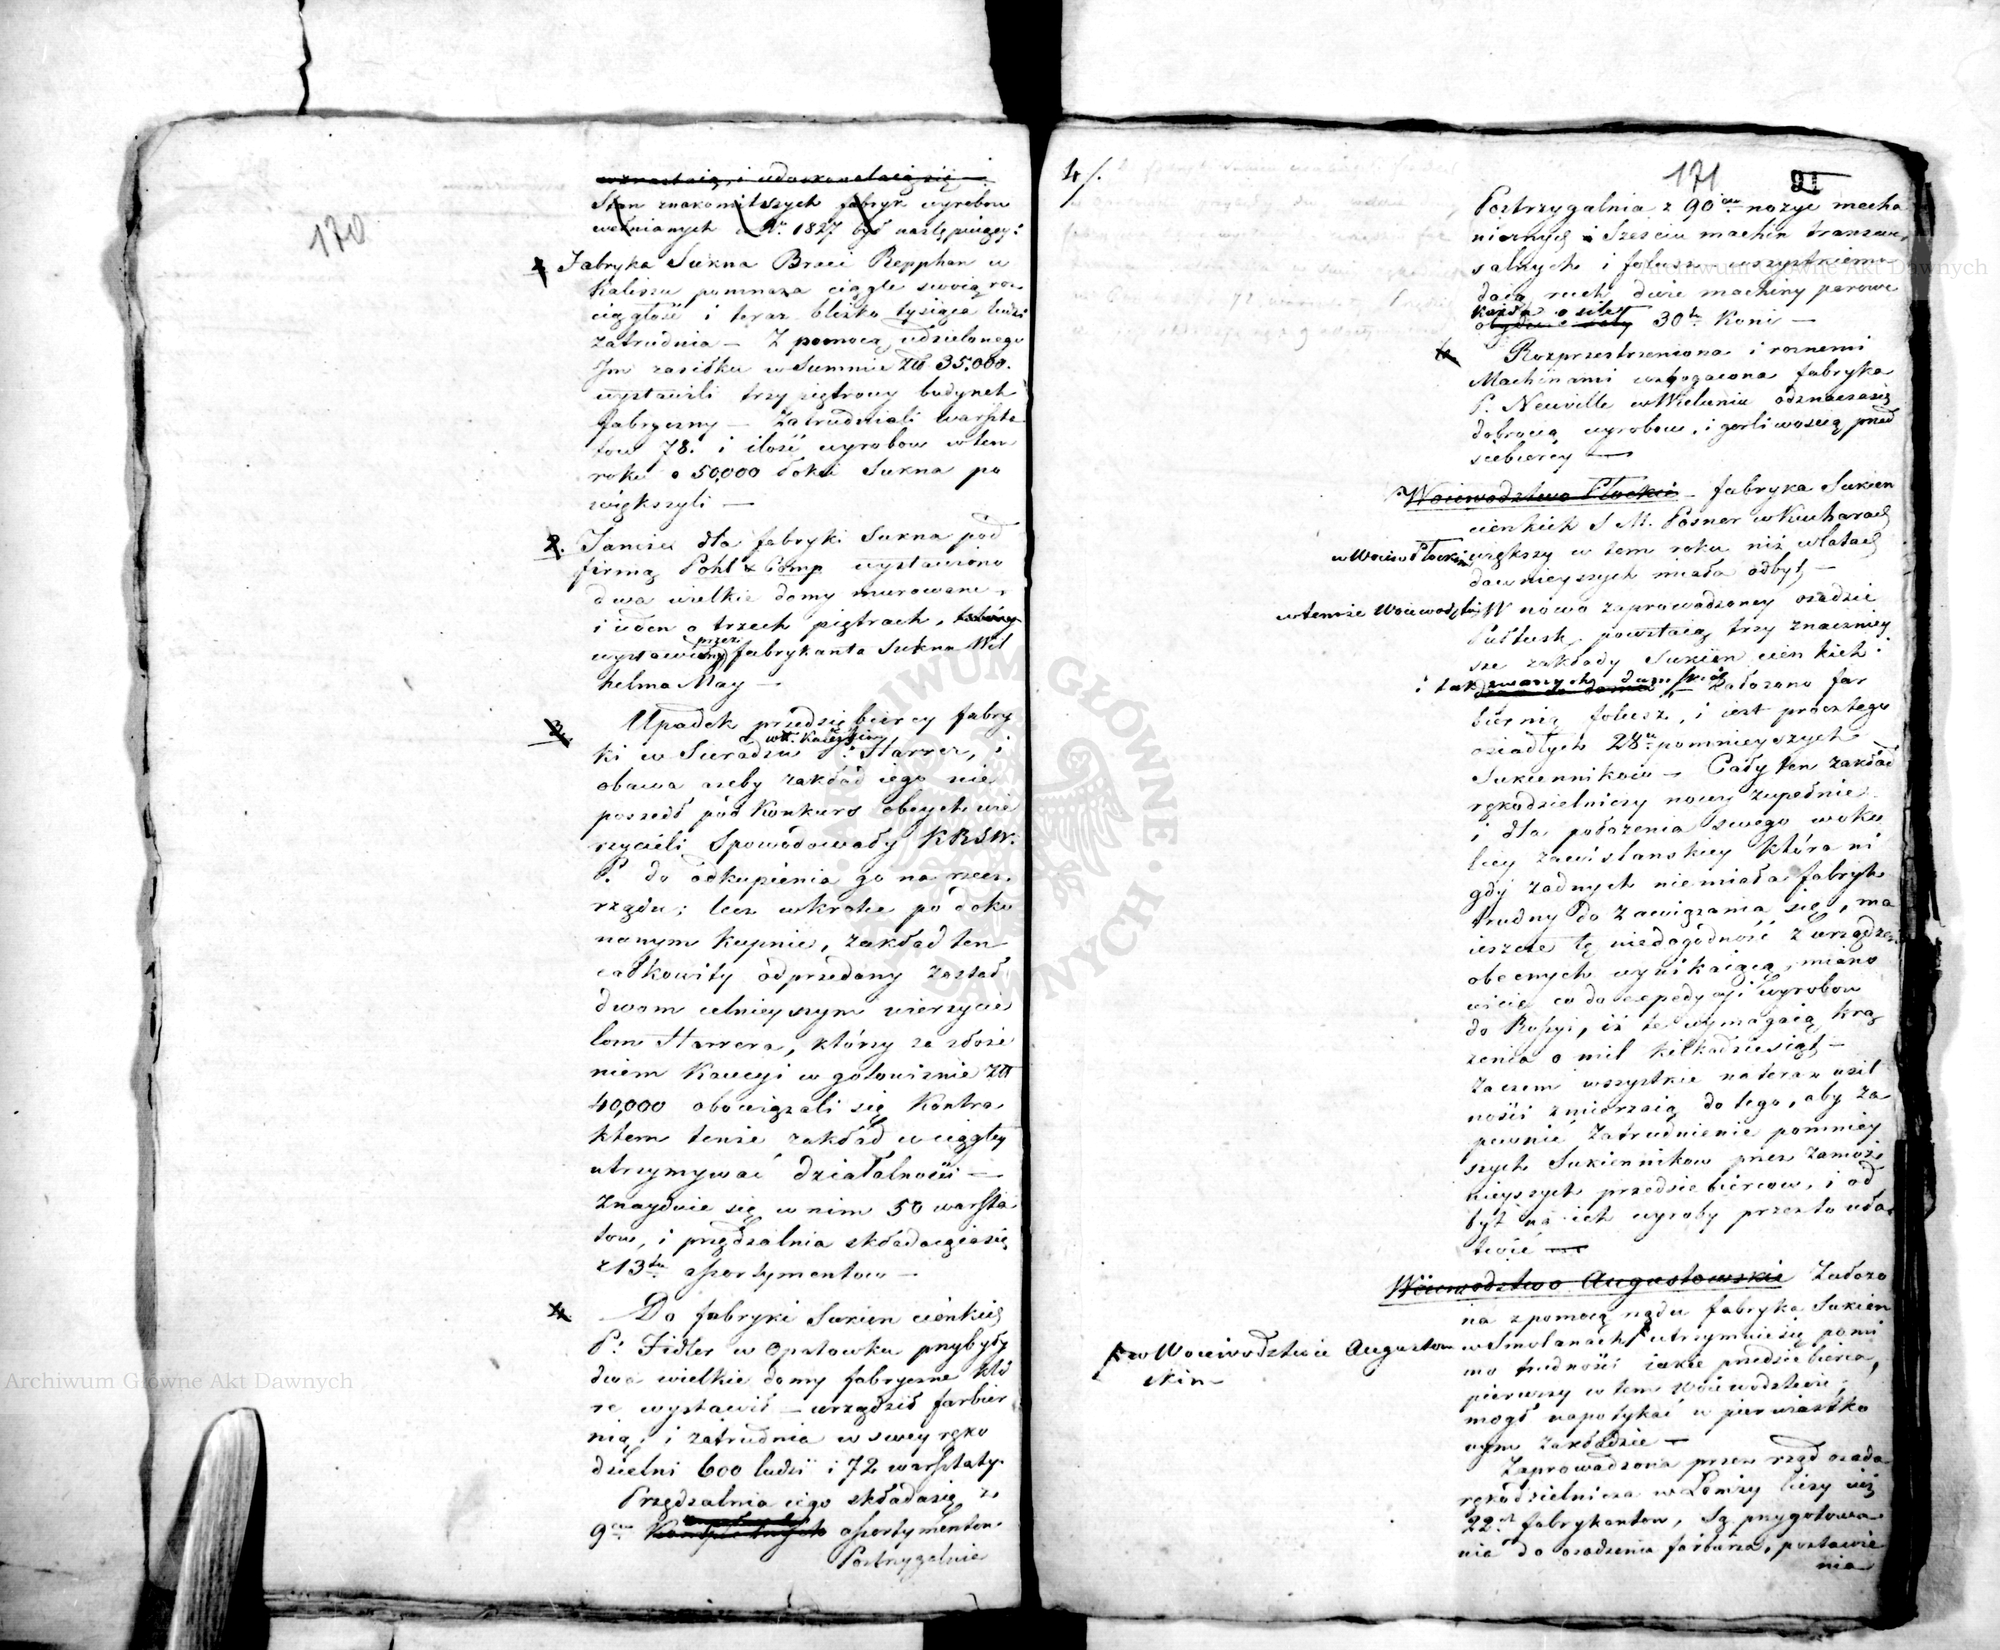 170
wzrastaią i udoskonalaią się
Stan znakomitszych fabryk wyrobow
wełnianych w R. 1827 był następuiący:
1. Fabryka Sukna Braci Repphan w
Kaliszu pomnaża ciągle swoią roz
ciągłość i teraz blisko tysiąca ludzi
zatrudnia — Z pomocą udzielonego
Im zasiłku w Summie Zł 35,000.
wystawili trzy piętrowy budynek
fabryczny — Zatrudniali warszta
tow 78. i ilość wyrobow w tem
roku o 50,000 łokci Sukna po
większyli —
2. Tamże dla fabryki Sukna pod
firmą Pohl & Comp wystawiono
dwa wielkie domy murowane,
i ieden o trzech piętrach,
wystawiony przez fabrykanta Sukna Wil
helma May —
3. Upadek przedsiębiercy fabry
ki w Sieradzu P. Harrer, i
obawa ażeby zakład iego nie
poszedł pod Konkurs obcych wie
rzycieli Spowodowały KRSW.
P. do odkupienia go na rzecz
rządu; lecz wkrotce po doko
nanym kupnie, zakład ten
całkowity odprzedany został
dwom celnieyszym wierzycie
lom Harrera, ktorzy ze złoże
niem Kaucyi w gotowiznie Zł
40,000 obowiązali się Kontra
ktem tenże zakład w ciągłey
utrzymywać działalności —
Znayduie się w nim 50 warszta
tow, i przędzalnia składaiąca się
z 13tu assortymentow —
4. Do fabryki Sukien cienkich
P. Fidler w Opatowku przybyły
dwa wielkie domy fabryczne kto
re wystawił — urządził farbier
nią, i zatrudnia w swey ręko
dzielni 600 ludzi i 72 warsztaty.
Przędzalnia iego składa się z
9ciu assortymentow.
Postrzygalnia
4/.
171
91
Postrzygalnia z 90ciu nożyc mecha
nicznych i Sześciu machin transwer
salnych i folusz wszystkiemu
daią ruch dwie machiny parowe
każda o sile 30tu Koni —
Rozprzestrzeniona i roznemi
Machinami wzbogacona fabryka
P. Neuville w Wieluniu odznacza się
dobrocią wyrobow, i gorliwością przed
siebiercy —
Woiewodztwo Płockie — fabryka Sukien
cienkich S M. Posner w Kucharach
w Woiew Płockim większy w tem roku niż w latach
dawnieyszych miała odbyt —
w temże Woiewodztwie W nowo zaprowadzoney osadzie
Pułtusk powstaią trzy znaczniey
sze zakłady Sukien cienkich
i tak zwanych damskich Założono far
biernią folusz, i iest procz tego
osiadłych 28u pomnieyszych
Sukiennikow — Cały ten zakład
rękodzielniczy nowy zupełnie
i dla położenia swego w oko
licy zawislanskiey ktora ni
gdy żadnych nie miała fabryk
trudny do zawiązania się, ma
ieszcze tę niedogodność z urządzeń
obecnych wynikaiącą, miano
wicie co do expedycyi wyrobow
do Rossyi, iż te wymagaią krą
żenia o mil kilkadziesiąt —
Zaczem wszystkie na teraz usil
ności zmierzaią do tego, aby za
pewnić zatrudnienie pomniey
szych Sukiennikow przez zamoż
nieyszych przedsiebiercow, i od
byt na ich wyroby przez to uła
twić —
Woiewodztwo Augustowskie Założo
na z pomocą rządu fabryka Sukien
w Smolanach utrzymuie się pomi
w Woiewodztwie Augustow
skim
mo trudności iakie przedsiebierca,
pierwszy w tem Woiewodztwie,
mogł napotykać w pierwiastko
wym zakładzie —
Zaprowadzona przez rząd osada
rękodzielnicza w Łomży liczy iuż
22ch fabrykantow, Są przygotowa
nia do osadzenia farbiarza, postawie
nia